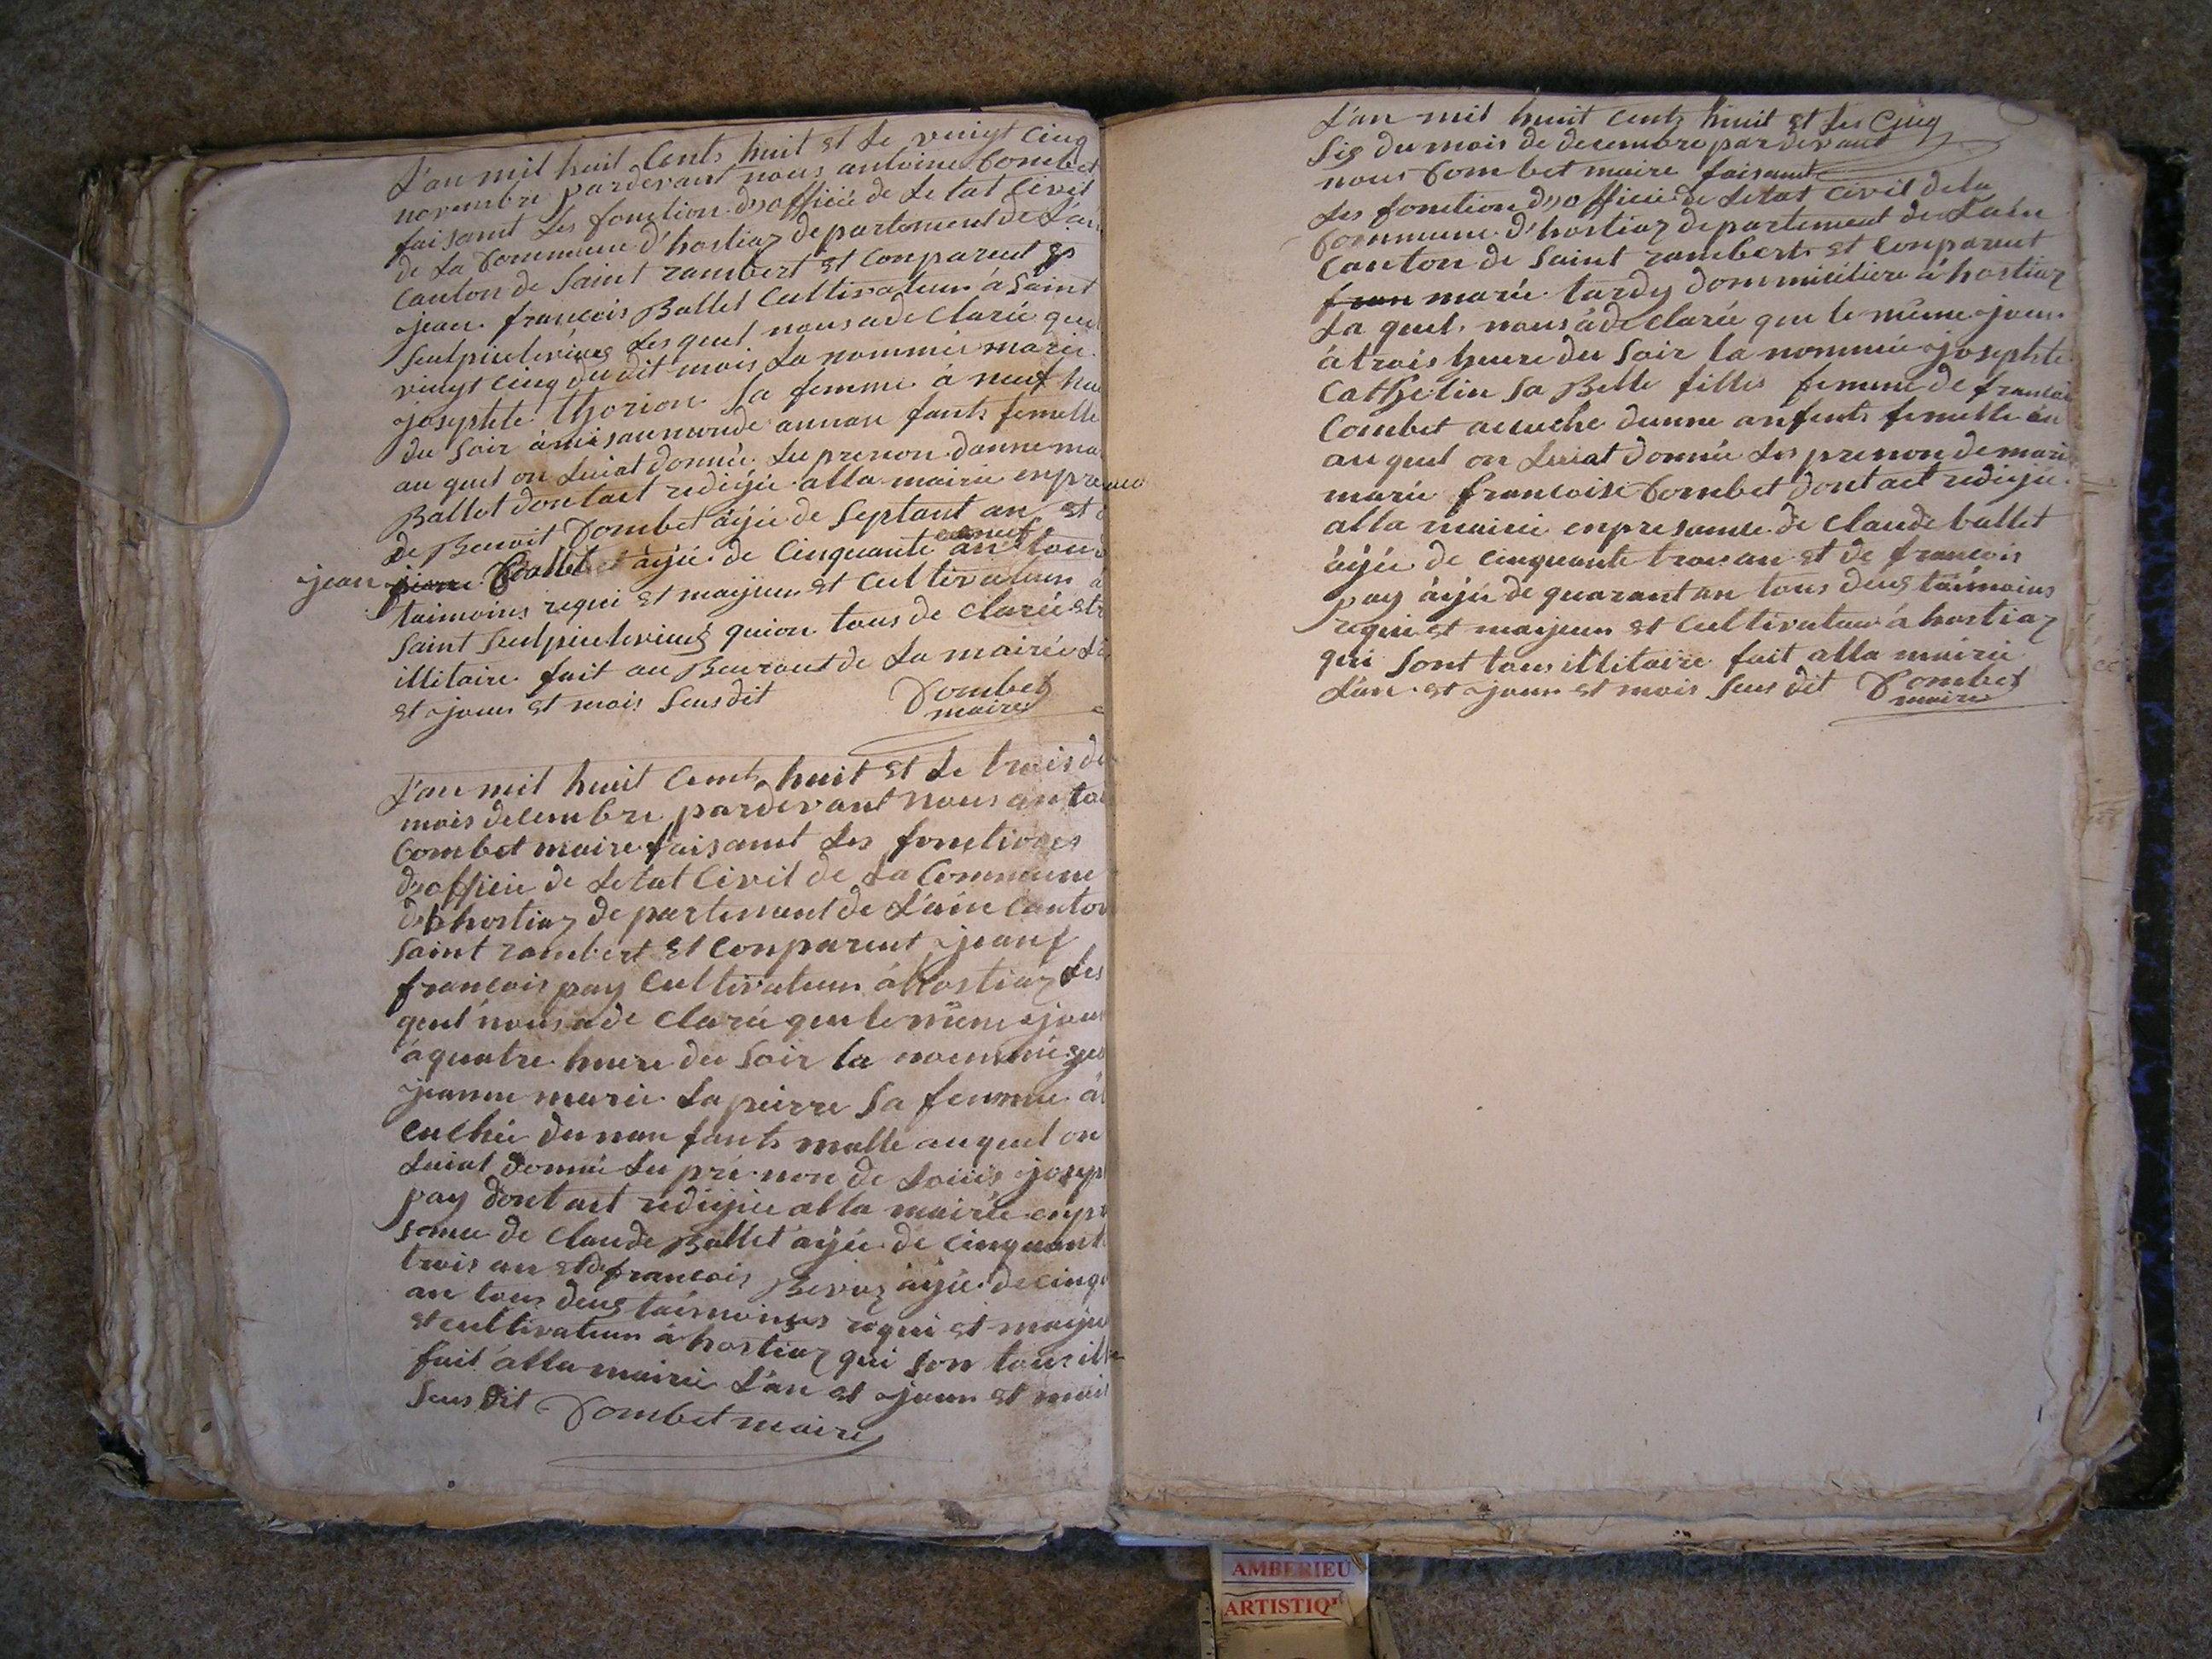 L'an mil huit Cents huit et Le vingt Cinq
novembre pardevant nous antoine Combet
faisant Les fonction de officié de Letat Civil
de La Commune d'hostiaz departement de L'ain
Canton de Saint rambert et Conparent
jean françois Ballet Cultivateur à Saint
Les quel nous a de Clarée que
vingt Cinq du dit mois La nommée marie
josephte thorion Sa femme à neuf
du Soir à mis au monde annan fants femelle
au quel on Luiat donnée Lu prenon danne
Ballet dontact redigée alla mairie
de Benoit Combet âgée de Septant an et
jean Ballet âgée de Cinquante
taimoins requi et majeur et Cultivateur a
Saint quion tous de Clarée
illitaire fait au Bauraut de La mairie
et jour et mois Sus dit Combet
maire
L'an mil huit Cents huit et Le trois
mois decembre pardevant nous
Combet maire faisant Les fonctions
de officié de Letat Civil de La Commune
hostiaz departement de L'ain Canton
Saint rambert et Conparent jean f
francois pay Cultivateur à hostiaz Les
quel nous a de Clarée que le même jour
à quatre heure du Soir la nommée
jeanne marie La peirre Sa femme
Cuchée du nan fants malle au quel on
Luiat donnée Lu pré non de Louis
pay dont act redigée alla mairie
Sance de Claude Ballet âgée de
trois an et de francois âgée de
an tous deus taimoins requi et
et Cultivateur à hostiaz qui Son tous
fait alla mairie L'an et jour et mois
Sus dit Combet maire
L'an mil huit Cents huit et Les Cinq
Sis du mois de decembre par devant
nous Combet maire faisant
Les fonction de officié de Letat Civil de la
Commune d'hostiaz departement de L'ain
Canton de Saint rambert et Conparent
fran marie tardy dommicilière à hostiaz
La quel nous à de Clarée que le même jour
à trois heure du Soir la nommée josephte
Cathelin Sa Belle filles femme de francois
Combet acuche dunne anfents femelle
au quel on Luiat donnée Les prenon de marie
marie francoise Combet dont act redigée
alla mairie en presance de Claude ballet
âgée de cinquante trois an et de francois
pay âgée de quarant an tous deus taimoins
requi et majeur et Cultivateur à hostiaz
qui Sont tous illitaire fait alla mairie
L'an et jour et mois Sus dit Combet
maire
AMBERIEU
ARTISTIQ